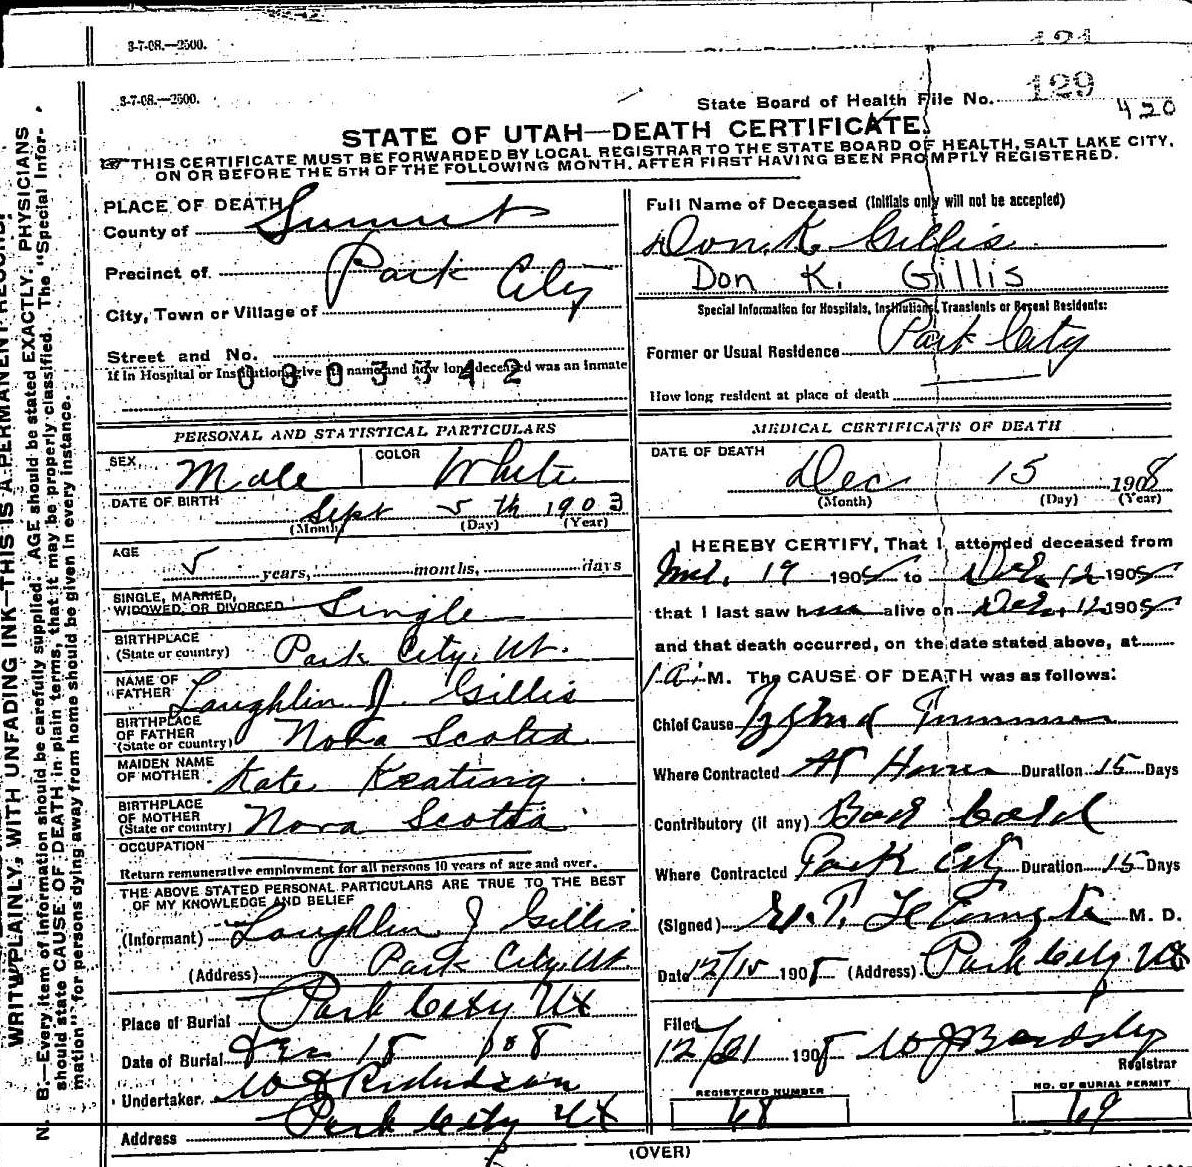 3-7-08.—2500.
3-7-08.—2500.
State Board of Health File No. 129
420
STATE OF UTAH—DEATH CERTIFICATE.
THIS CERTIFICATE MUST BE FORWARDED BY LOCAL REGISTRAR TO THE STATE BOARD OF HEALTH, SALT LAKE CITY,
ON OR BEFORE THE 5TH OF THE FOLLOWING MONTH, AFTER FIRST HAVING BEEN PROMPTLY REGISTERED.
WRITE PLAINLY, WITH UNFADING INK—THIS IS A PERMANENT RECORD.
N. B.—Every item of information should be carefully supplied. AGE should be stated EXACTLY. PHYSICIANS
should state CAUSE OF DEATH in plain terms, that it may be properly classified. The "Special Infor-
mation" for persons dying away from home should be given in every instance.
PLACE OF DEATH
County of Summit
Precinct of Park City
City, Town or Village of
Street and No.
If in Hospital or Institution, give its name and how long deceased was an inmate
PERSONAL AND STATISTICAL PARTICULARS
SEX Male COLOR White
DATE OF BIRTH Sept 5th 1903
(Month) (Day) (Year)
AGE 5 years, months, days
SINGLE, MARRIED,
WIDOWED, OR DIVORCED Single
BIRTHPLACE
(State or country) Park City, Ut.
NAME OF
FATHER Laughlin J. Gillis
BIRTHPLACE
OF FATHER
(State or country) Nova Scotia
MAIDEN NAME
OF MOTHER Kate Keating
BIRTHPLACE
OF MOTHER
(State or country) Nova Scotia
OCCUPATION
Return remunerative employment for all persons 10 years of age and over.
THE ABOVE STATED PERSONAL PARTICULARS ARE TRUE TO THE BEST
OF MY KNOWLEDGE AND BELIEF
(Informant) Laughlin J Gillis
(Address) Park City, Ut.
Place of Burial Park City Ut
Date of Burial 18
Undertaker W J Richardson
Address Park City Ut
Full Name of Deceased (Initials only will not be accepted)
Don. K. Gillis
Don K. Gillis
Special Information for Hospitals, Institutions, Transients or Recent Residents:
Former or Usual Residence Park City
How long resident at place of death
MEDICAL CERTIFICATE OF DEATH
DATE OF DEATH
Dec 15 1908
(Month) (Day) (Year)
I HEREBY CERTIFY, That I attended deceased from
19 1908 to Dec. 12 1908
that I last saw him alive on Dec. 12 1908
and that death occurred, on the date stated above, at
1 a. M. The CAUSE OF DEATH was as follows:
Chief Cause
Where Contracted At Home Duration 15 Days
Contributory (if any) Bad Cold
Where Contracted Park City Duration 15 Days
(Signed) M. D.
Date 12/15 1908 (Address) Park City Ut
Filed
12/21 1908 W J Bardsley
Registrar
REGISTERED NUMBER
68
NO. OF BURIAL PERMIT
69
(OVER)